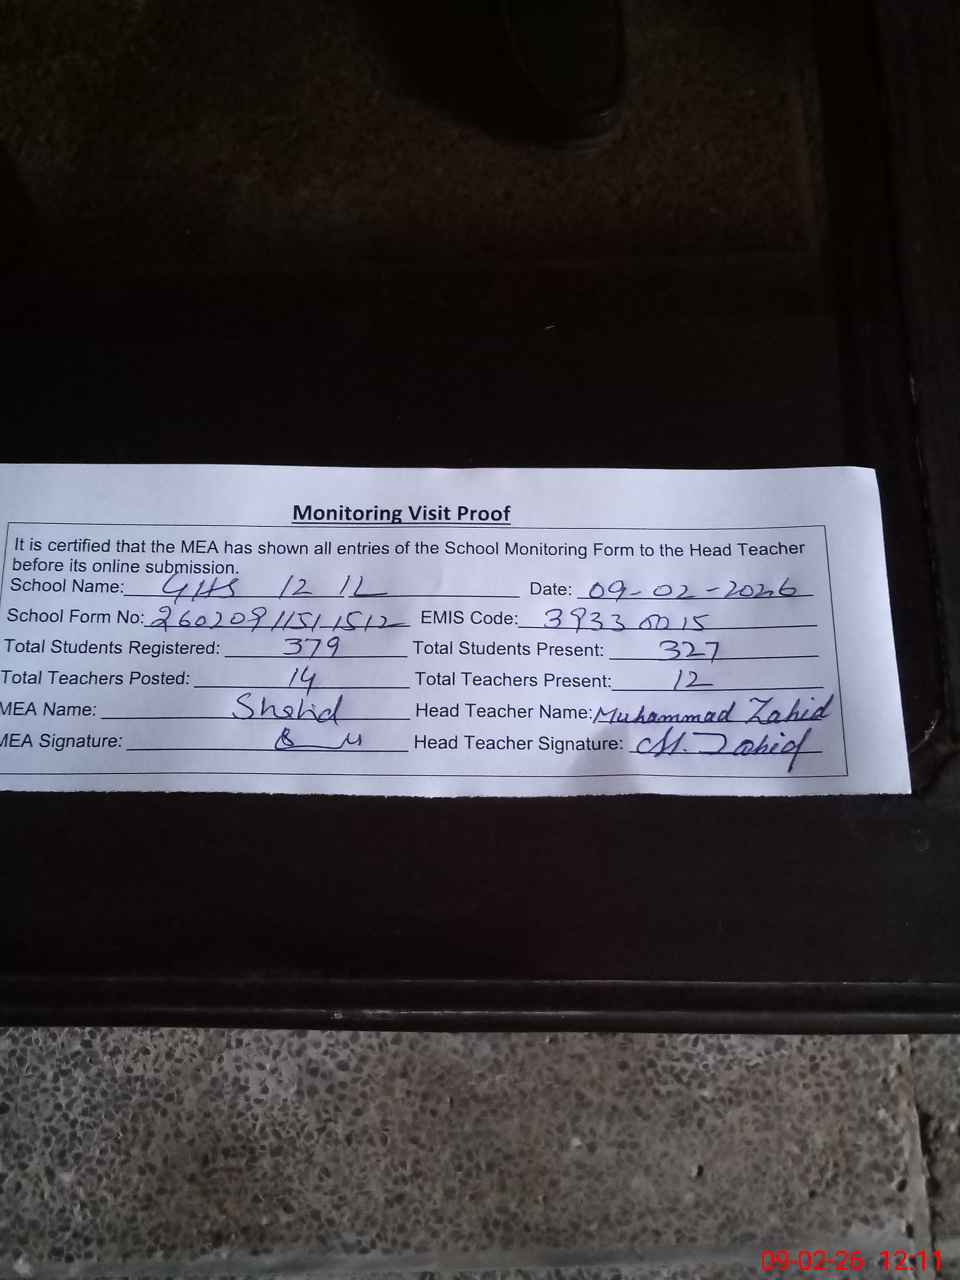 Monitoring Visit Proof
It is certified that the MEA has shown all entries of the School Monitoring Form to the Head Teacher
before its online submission.
School Name: GHS 12 1L Date: 09-02-2026
School Form No: 26020911511512 EMIS Code: 3933 0015
Total Students Registered: 379 Total Students Present: 327
Total Teachers Posted: 14 Total Teachers Present: 12
MEA Name: Shahid Head Teacher Name: Muhammad Zahid
MEA Signature: Head Teacher Signature: M. Zahid
09-02-26 12:11